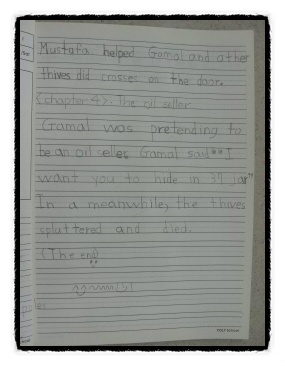 Mustafa helped Gamal and other
thives did crosses on the door.
<chapter 4>. The oil seller
Gamal was pretending to
be an oil seller. Gamal said "I
want you to hide in 37 jar"
In a meanwhile, the thives
splattered and died.
(The end)